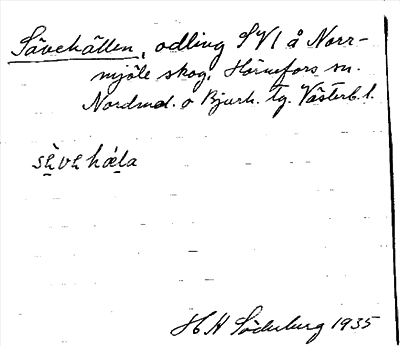 Sävehällen, odling SV1 å Norr-
mjöle skog. Hörnefors sn.
Nordmal. o Bjurh. tg. Västerb. l.
sὲvɛ hǽla
H H Söderberg 1935